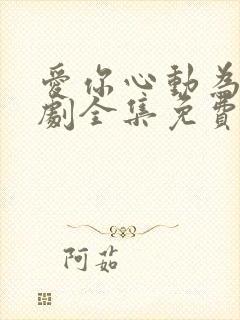 愛你心動為
劇全集免費
阿茹